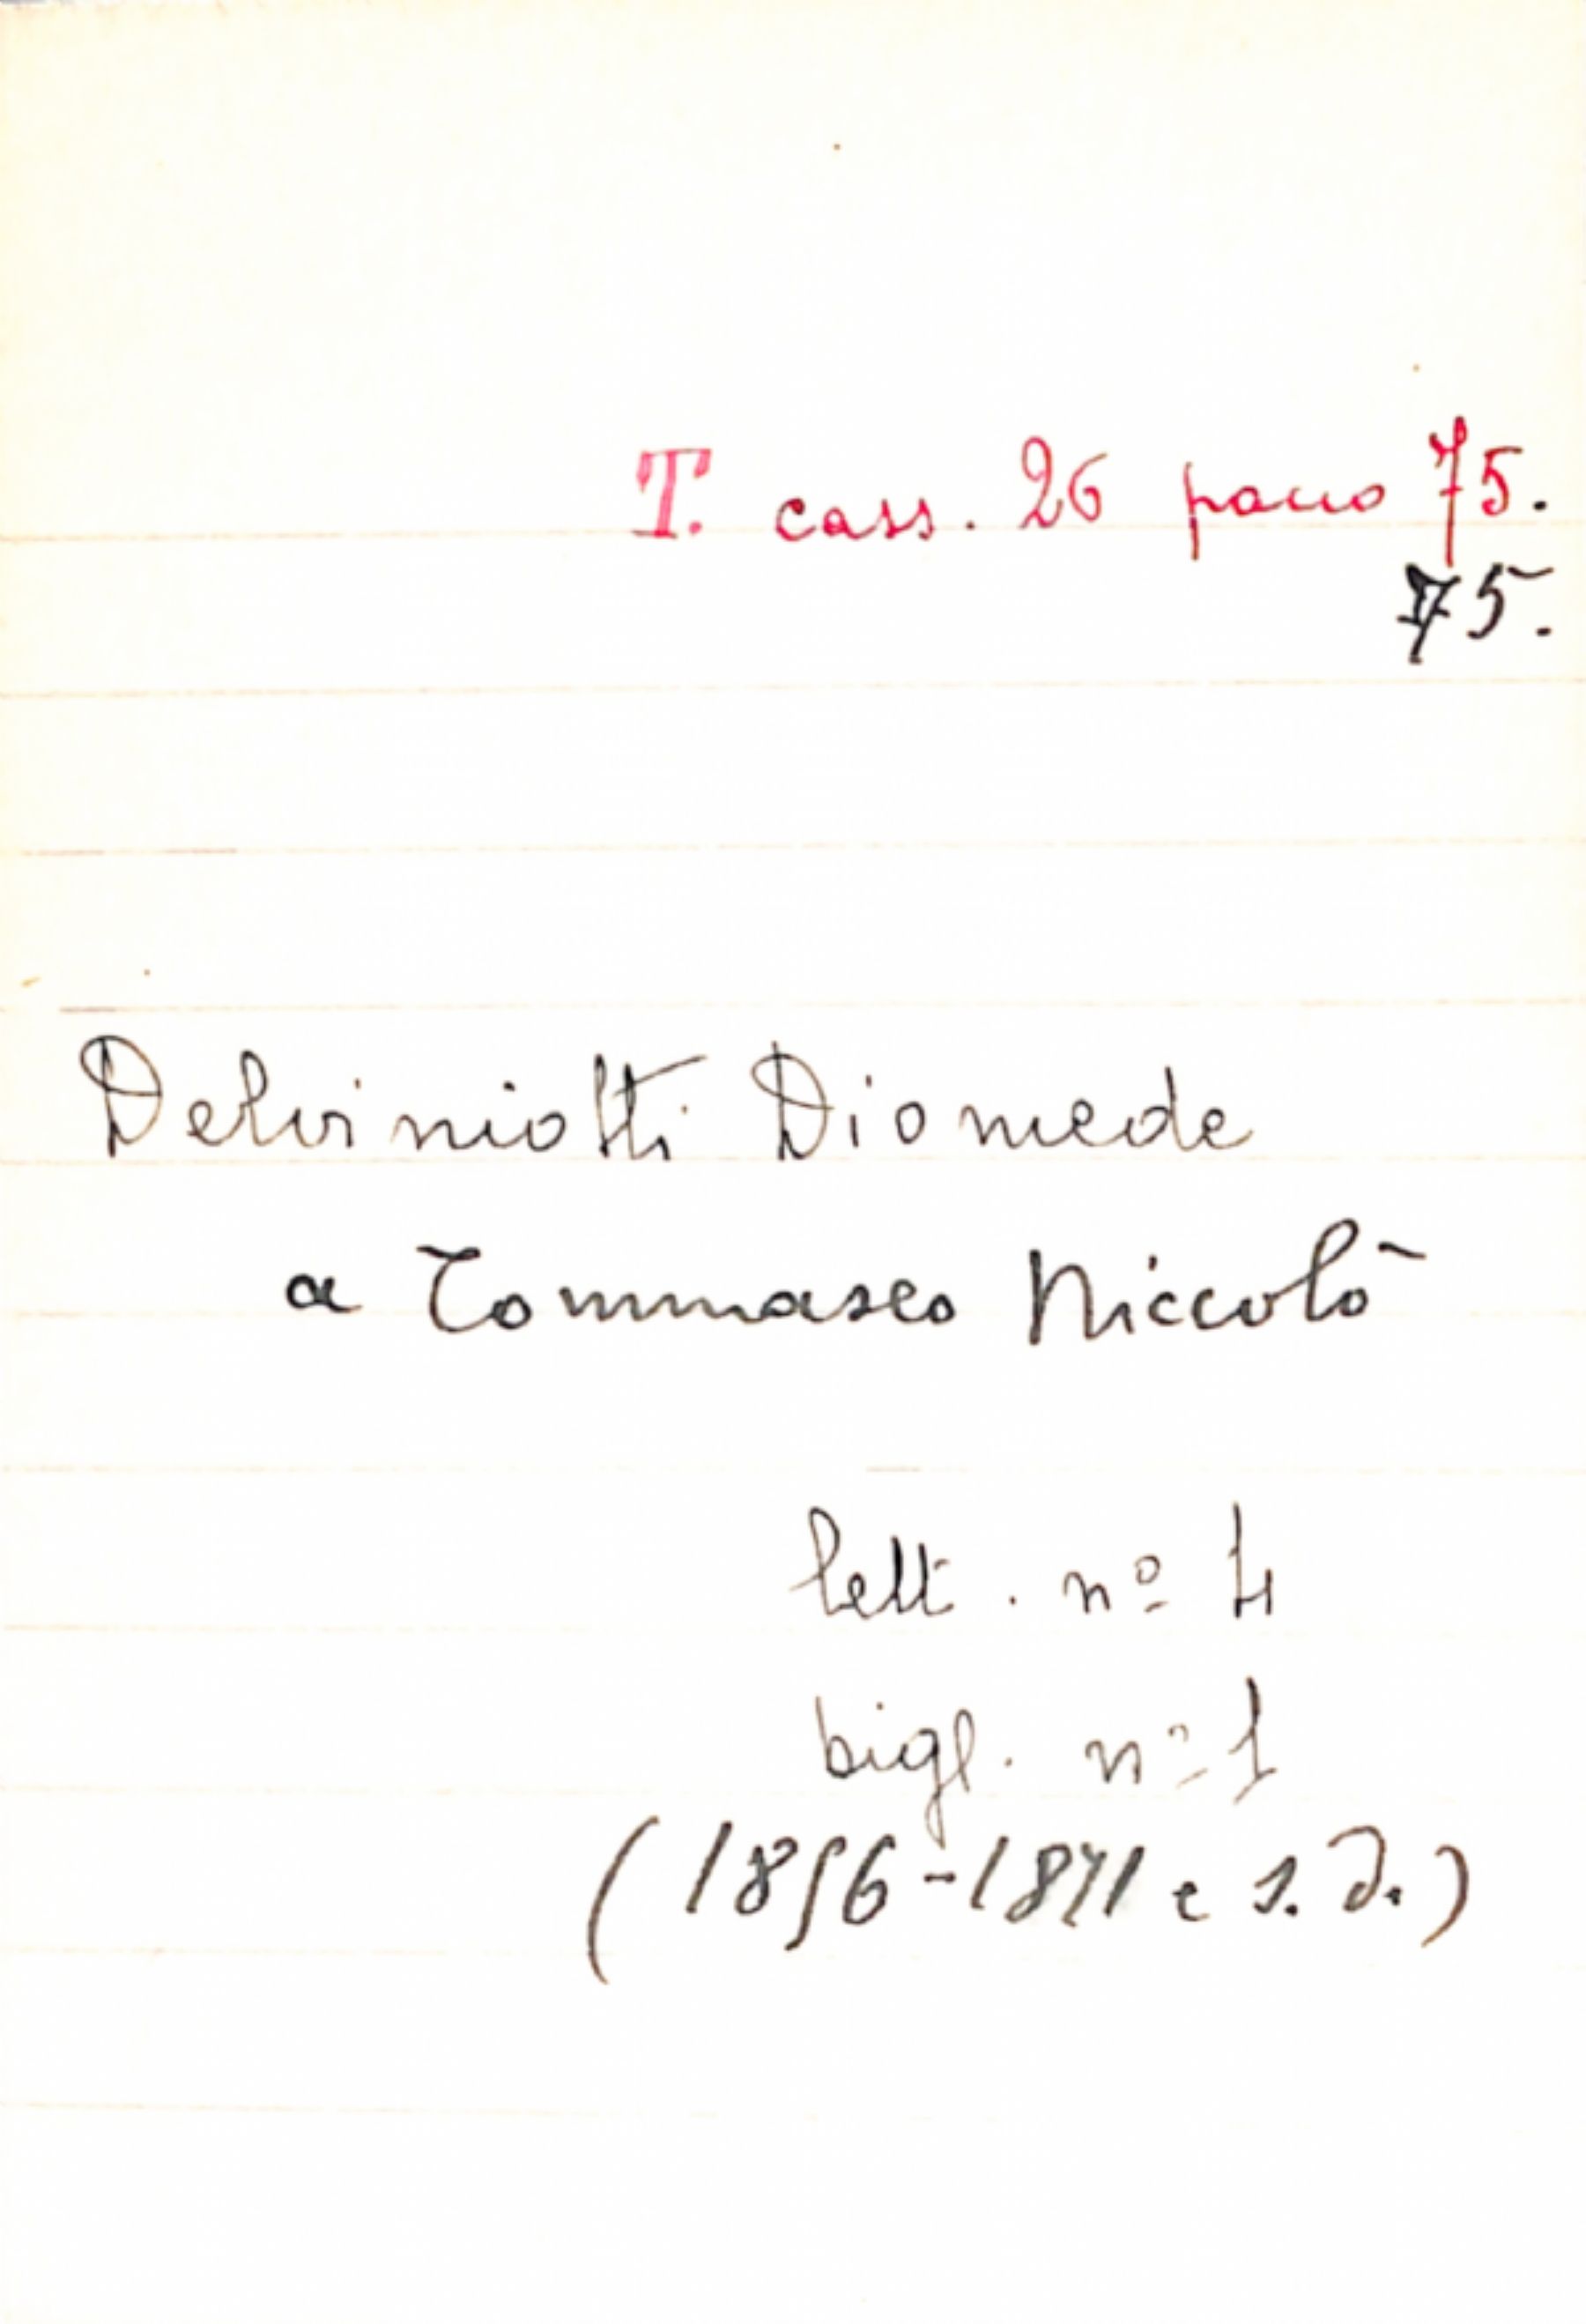 T. cass. 26 pacco 75.
75.
Delviniotti Diomede
a Tommaseo Niccolò
lett. nº 4
bigl. nº 1
(1856-1871 e s. d.)